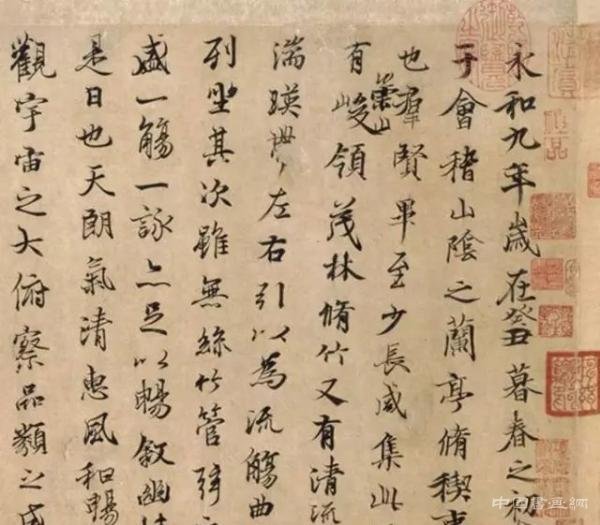 永和九年歲在癸丑暮春之初
于會稽山陰之蘭亭脩稧事
也羣賢畢至少長咸集此
有崇山峻領茂林脩竹又有清流
湍暎帶左右引以為流觴曲
列坐其次雖無絲竹管弦之
盛一觴一詠亦足以暢敘幽情
是日也天朗氣清惠風和暢
觀宇宙之大俯察品類之盛
中国書画網